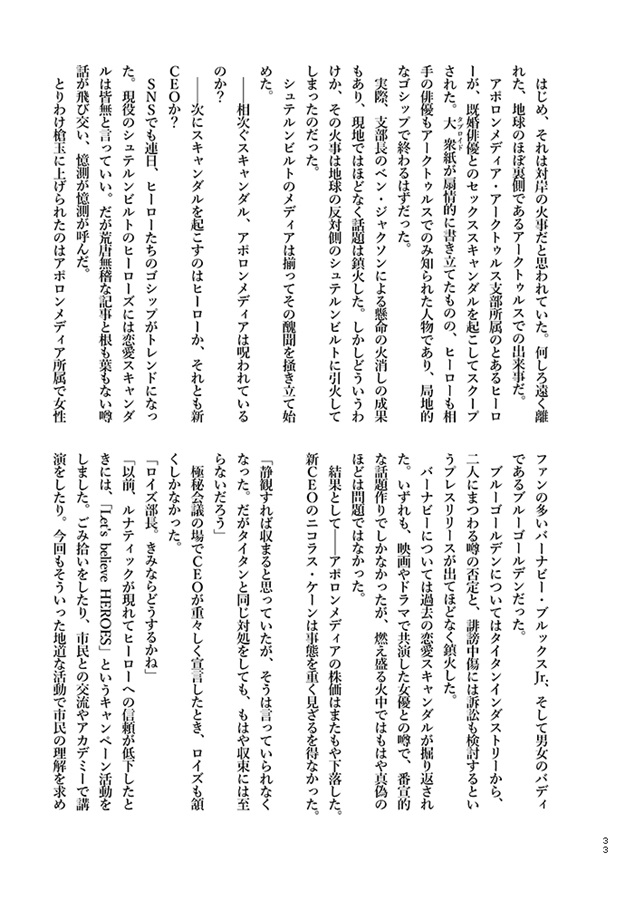 はじめ、それは対岸の火事だと思われていた。何しろ遠く離
れた、地球のほぼ裏側であるアークトゥルスでの出来事だ。
　アポロンメディア・アークトゥルス支部所属のとあるヒーロ
ーが、既婚俳優とのセックススキャンダルを起こしてスクープ
された。大衆紙が扇情的に書き立てたものの、ヒーローも相
タブロイド
手の俳優もアークトゥルスでのみ知られた人物であり、局地的
なゴシップで終わるはずだった。
　実際、支部長のベン・ジャクソンによる懸命の火消しの成果
もあり、現地ではほどなく話題は鎮火した。しかしどういうわ
けか、その火事は地球の反対側のシュテルンビルトに引火して
しまったのだった。
　シュテルンビルトのメディアは揃ってその醜聞を掻き立て始
めた。
　――相次ぐスキャンダル、アポロンメディアは呪われている
のか？
　――次にスキャンダルを起こすのはヒーローか、それとも新
CEOか？
　SNSでも連日、ヒーローたちのゴシップがトレンドになっ
た。現役のシュテルンビルトのヒーローズには恋愛スキャンダ
ルは皆無と言っていい。だが荒唐無稽な記事と根も葉もない噂
話が飛び交い、憶測が憶測が呼んだ。
　とりわけ槍玉に上げられたのはアポロンメディア所属で女性
ファンの多いバーナビー・ブルックスJr.、そして男女のバディ
であるブルーゴールデンだった。
　ブルーゴールデンについてはタイタンインダストリーから、
二人にまつわる噂の否定と、誹謗中傷には訴訟も検討するとい
うプレスリリースが出てほどなく鎮火した。
　バーナビーについては過去の恋愛スキャンダルが掘り返され
た。いずれも、映画やドラマで共演した女優との噂で、番宣的
な話題作りでしかなかったが、燃え盛る火中ではもはや真偽の
ほどは問題ではなかった。
　結果として――アポロンメディアの株価はまたもや下落した。
新CEOのニコラス・ケーンは事態を重く見ざるを得なかった。
「静観すれば収まると思っていたが、そうは言っていられなく
なった。だがタイタンと同じ対処をしても、もはや収束には至
らないだろう」
　極秘会議の場でCEOが重々しく宣言したとき、ロイズも頷
くしかなかった。
「ロイズ部長。きみならどうするかね」
「以前、ルナティックが現れてヒーローへの信頼が低下したと
きには、「Let's believe HEROES」というキャンペーン活動を
しました。ごみ拾いをしたり、市民との交流やアカデミーで講
演をしたり。今回もそういった地道な活動で市民の理解を求め
33